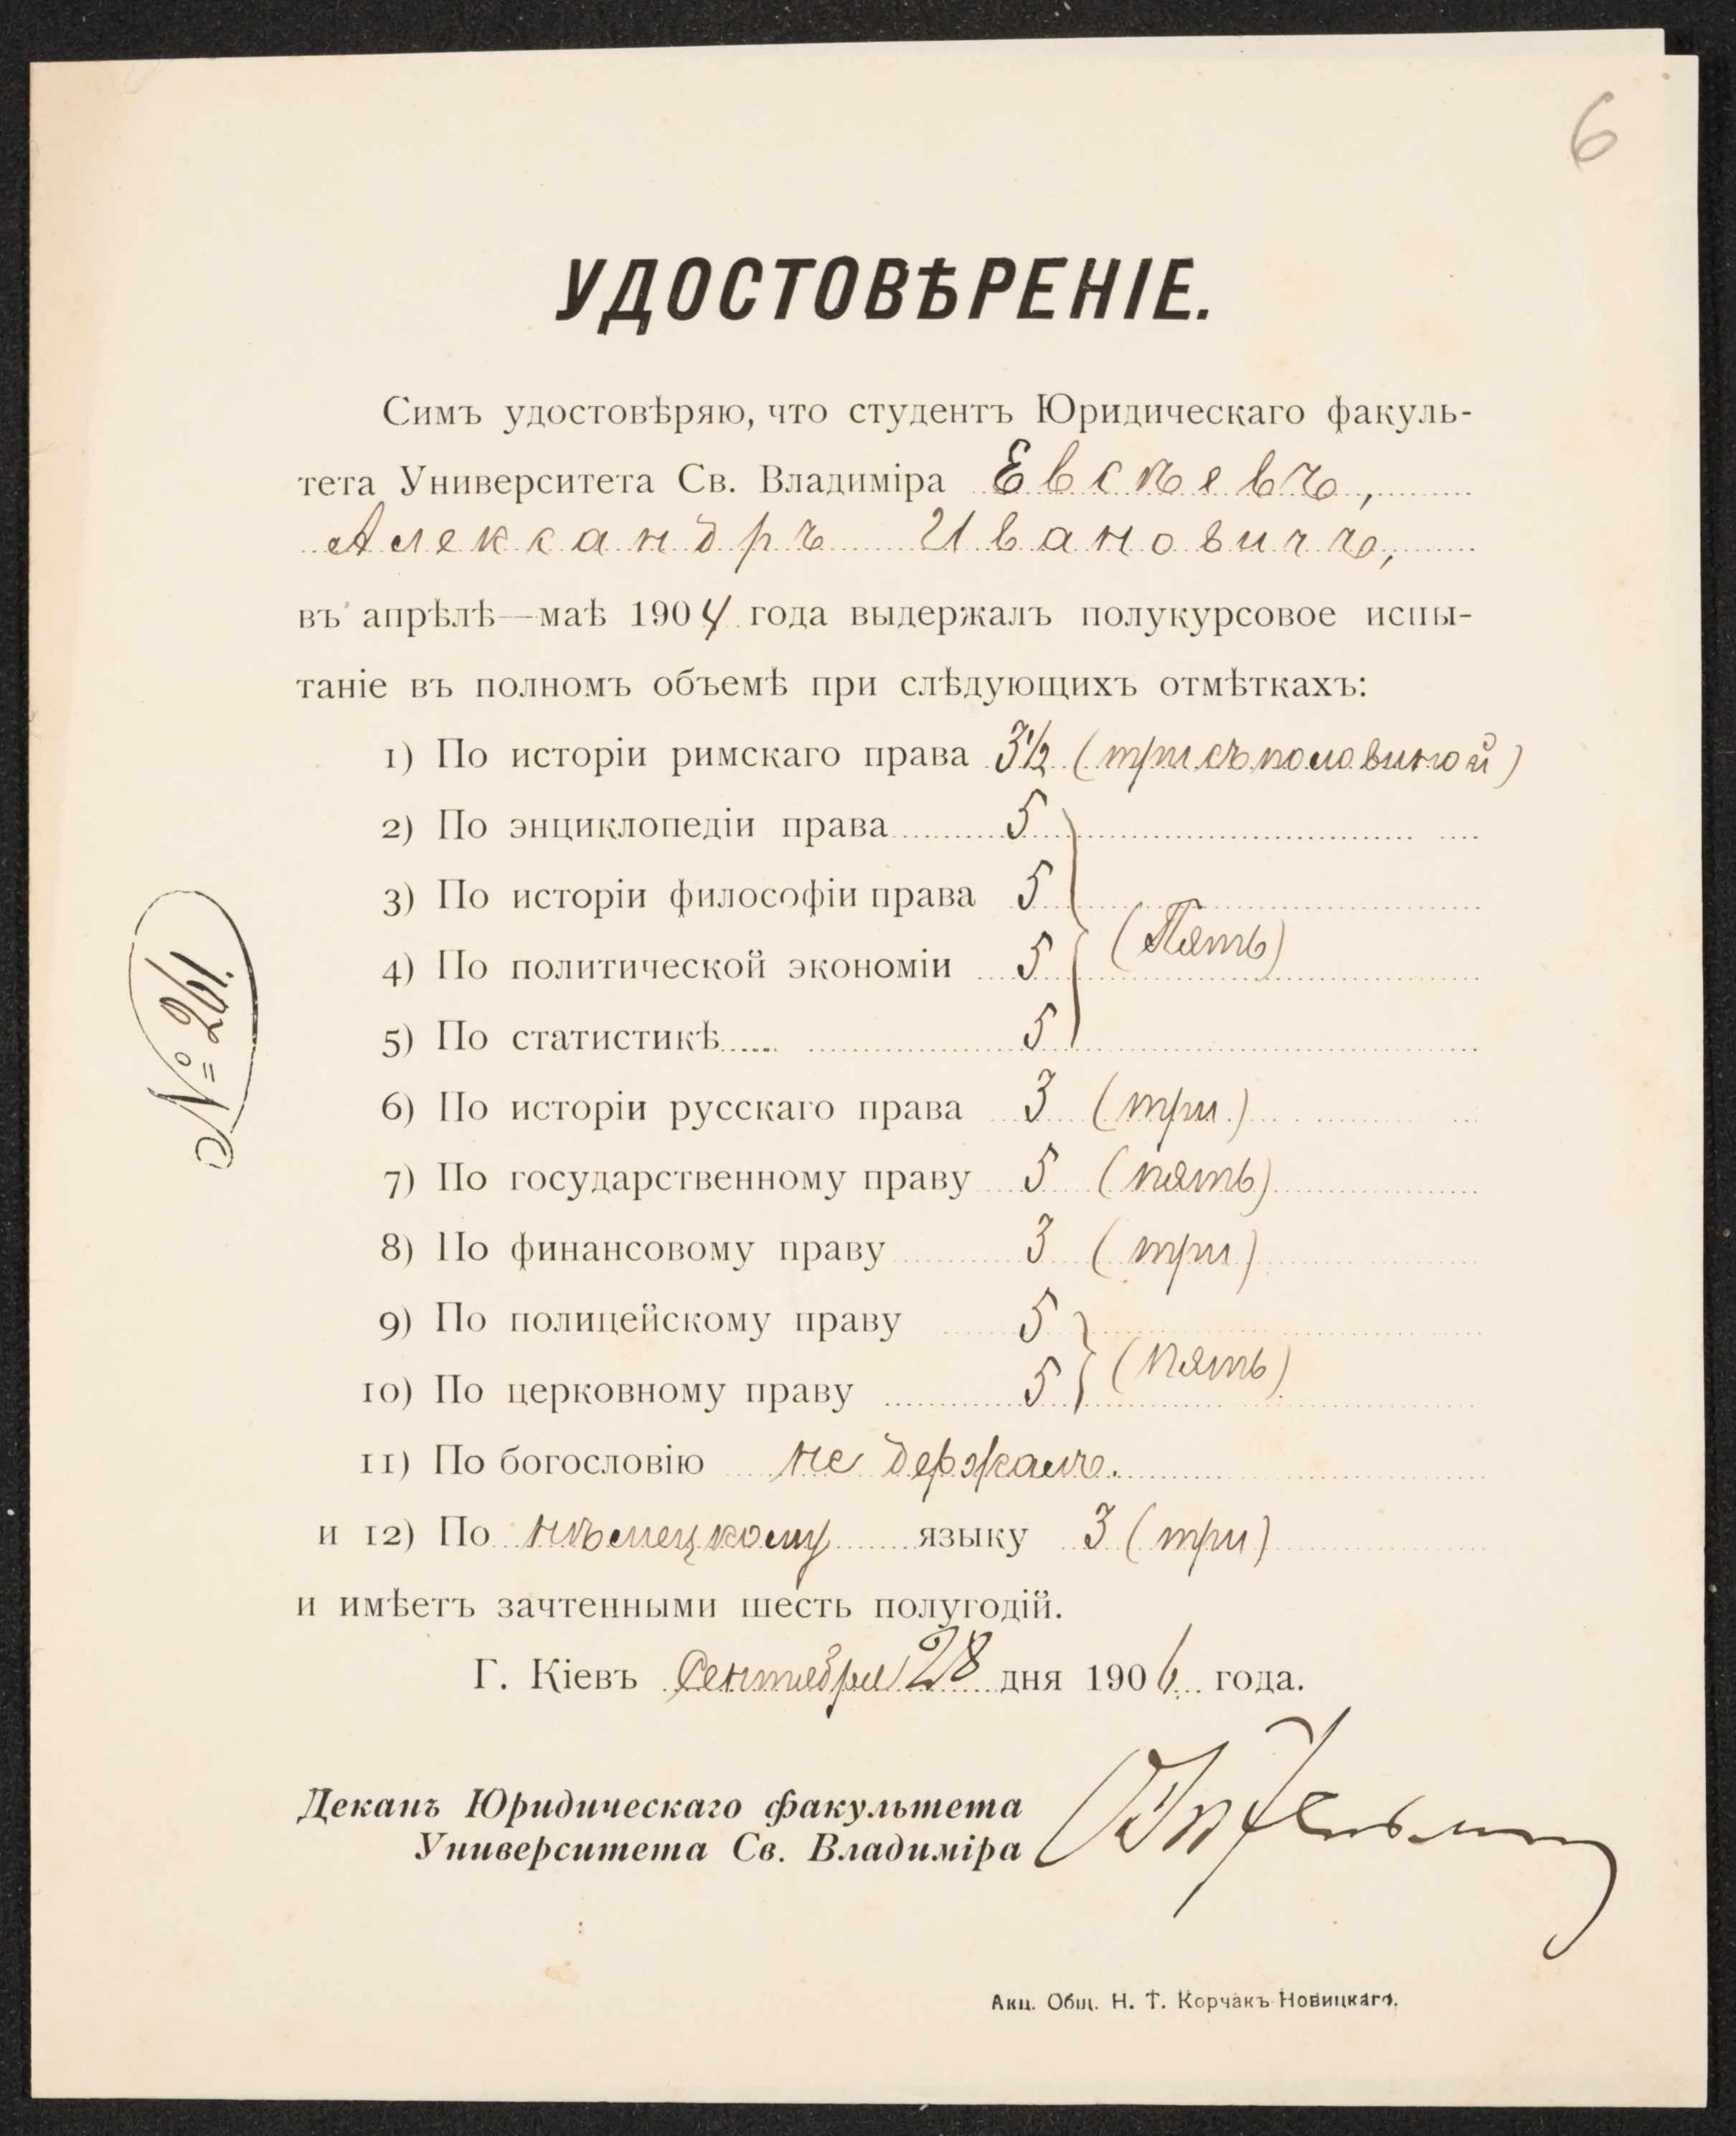 6
УДОСТОВѢРЕНІЕ.
Симъ удостовѣряю, что студентъ Юридическаго факуль-
тета Университета Св. Владиміра Евсѣевъ,
Александръ Ивановичъ,
въ апрѣлѣ—маѣ 1904 года выдержалъ полукурсовое испы-
таніе въ полномъ объемѣ при слѣдующихъ отмѣткахъ:
1) По исторіи римскаго права 3½ (три съ половиной)
2) По энциклопедіи права 5
3) По исторіи философіи права 5
(Пять)
4) По политической экономіи 5
5) По статистикѣ 5
6) По исторіи русскаго права 3 (три)
7) По государственному праву 5 (пять)
8) По финансовому праву 3 (три)
9) По полицейскому праву 5
(пять)
10) По церковному праву 5
11) По богословію не держалъ.
и 12) По нѣмецкому языку 3 (три)
и имѣетъ зачтенными шесть полугодій.
Г. Кіевъ Сентября 28 дня 1906 года.
Деканъ Юридическаго факультета
Университета Св. Владиміра
Акц. Общ. Н. Т. Корчакъ-Новицкаго.
№ 261.